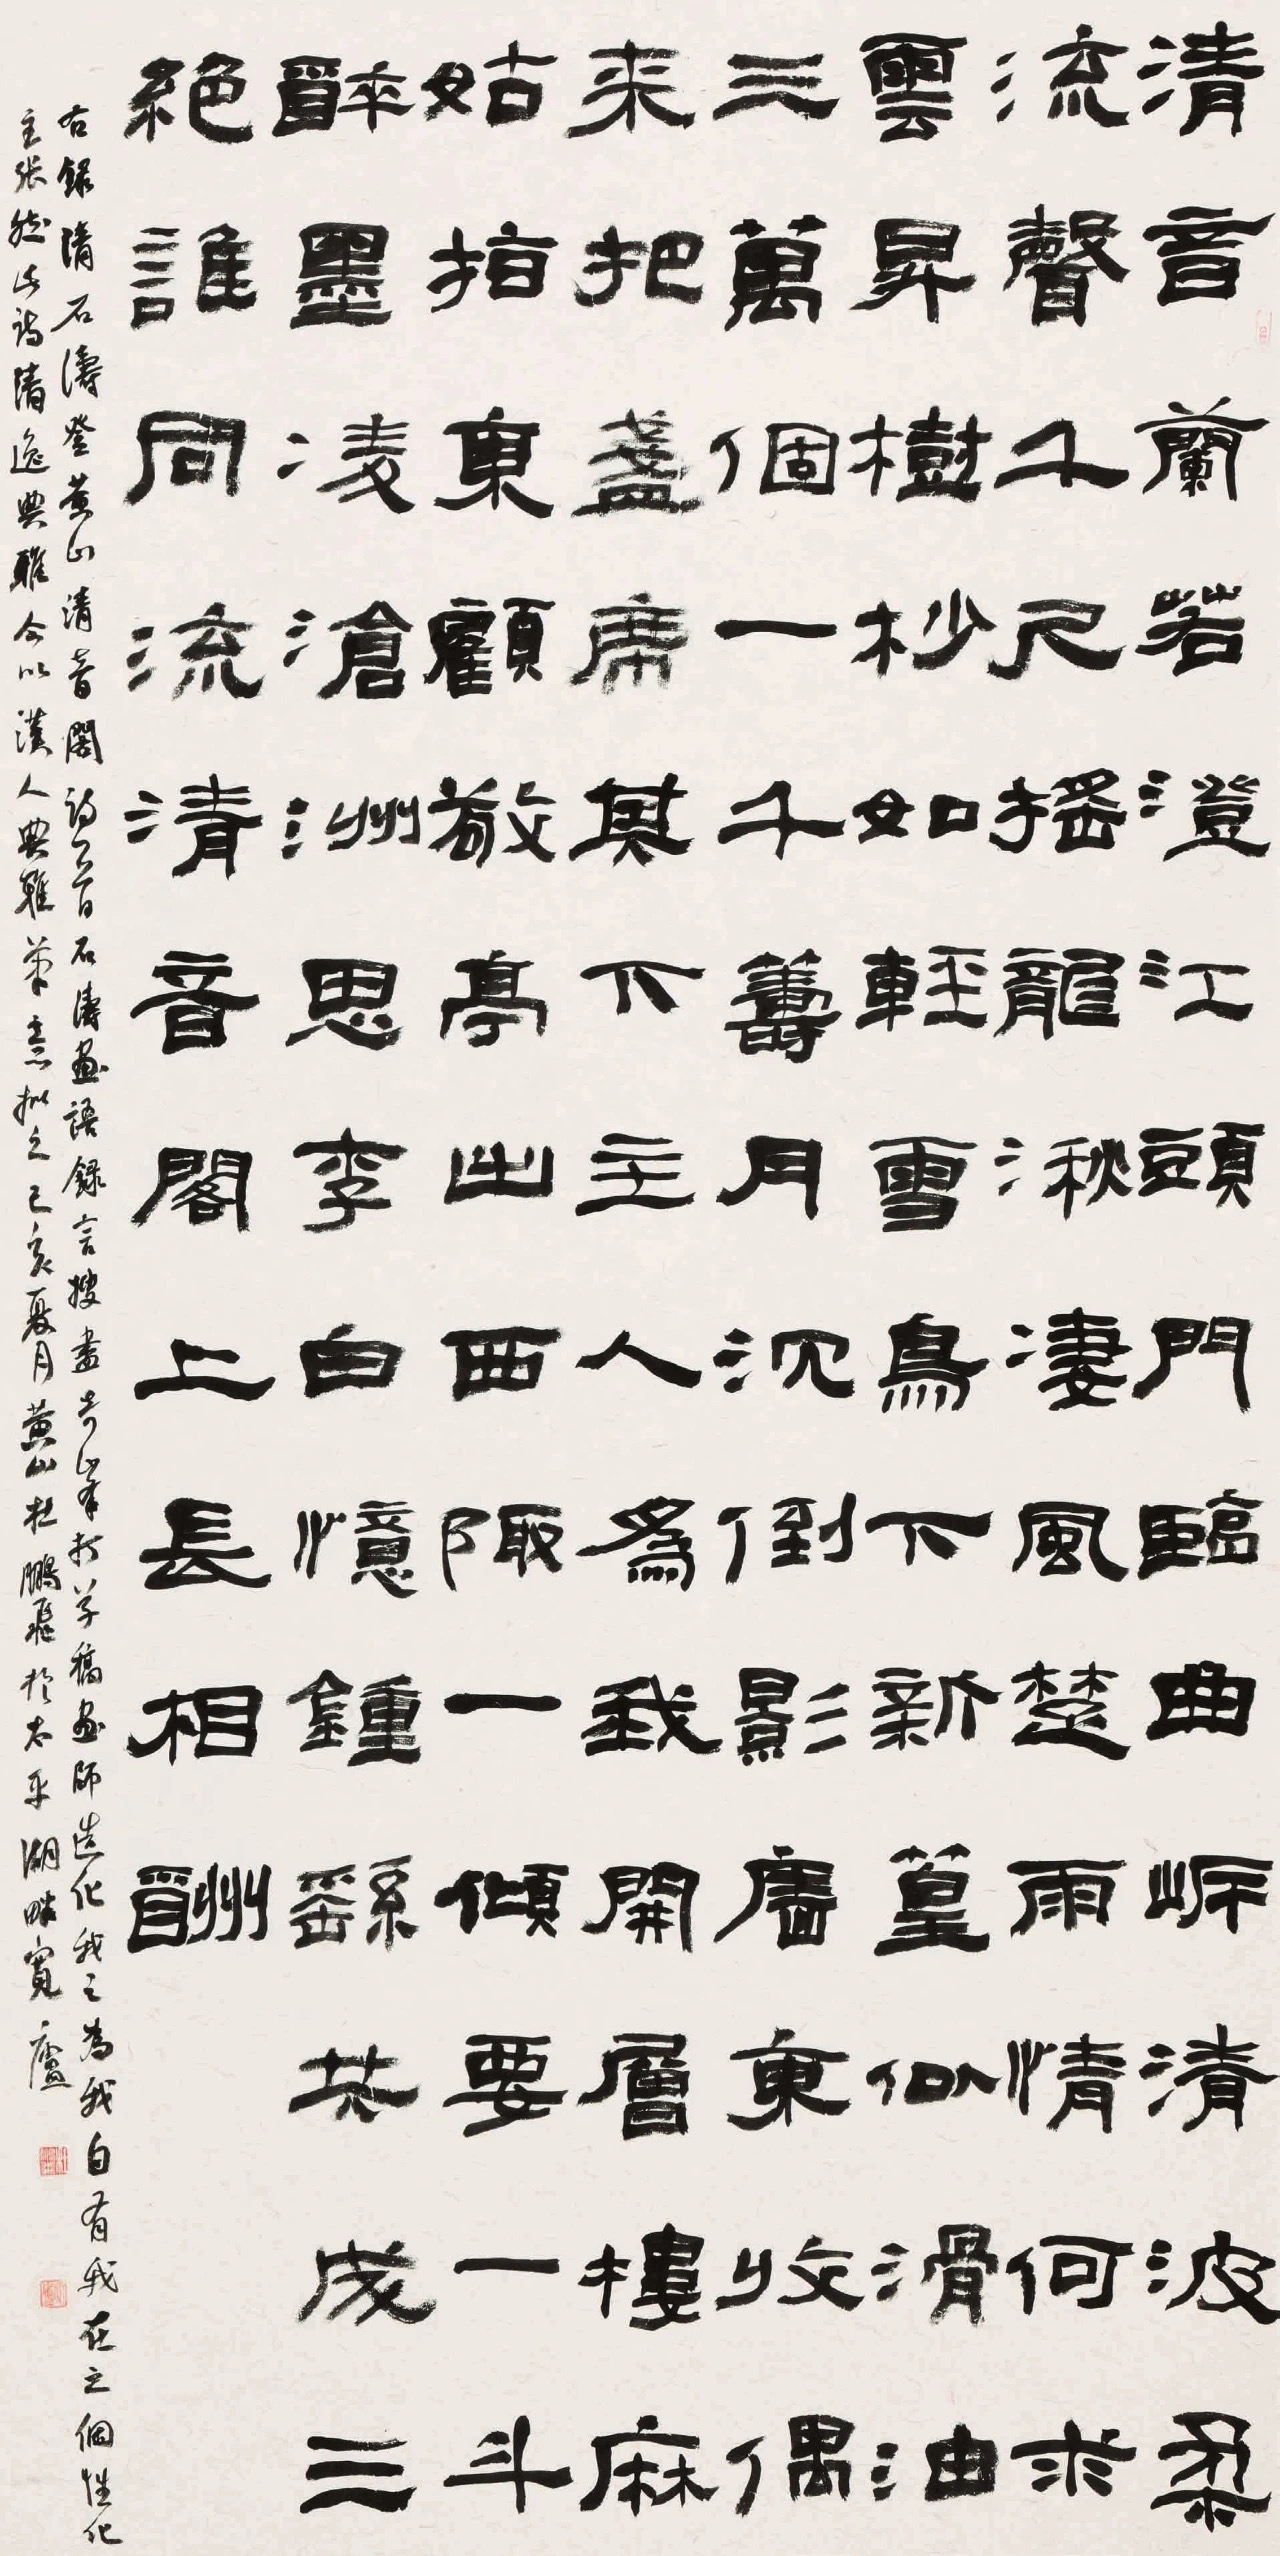 清音蘭若澄江頭門臨曲岸清波柔
流聲千尺搖龍湫淒風楚雨情何求
雲昇樹杪如輕雪鳥下新篁似滑油
三萬個一千籌月沉倒影唐東收偶
来把盞席其下主人為我開層樓麻
姑指東顧敬亭出西陬一傾要一斗
醉墨凌滄洲思李白憶鍾繇共成三
絕誰同流清音閣上長相酬
右錄清石濤登黃山清音閣詩一首石濤畫語錄言搜盡奇峰打草稿畫師造化我之為我自有我在之個性化
主張然此詩清逸典雅今以漢人典雅筆意擬之己亥夏月黃山杜鵬飛於太平湖畔寬廬